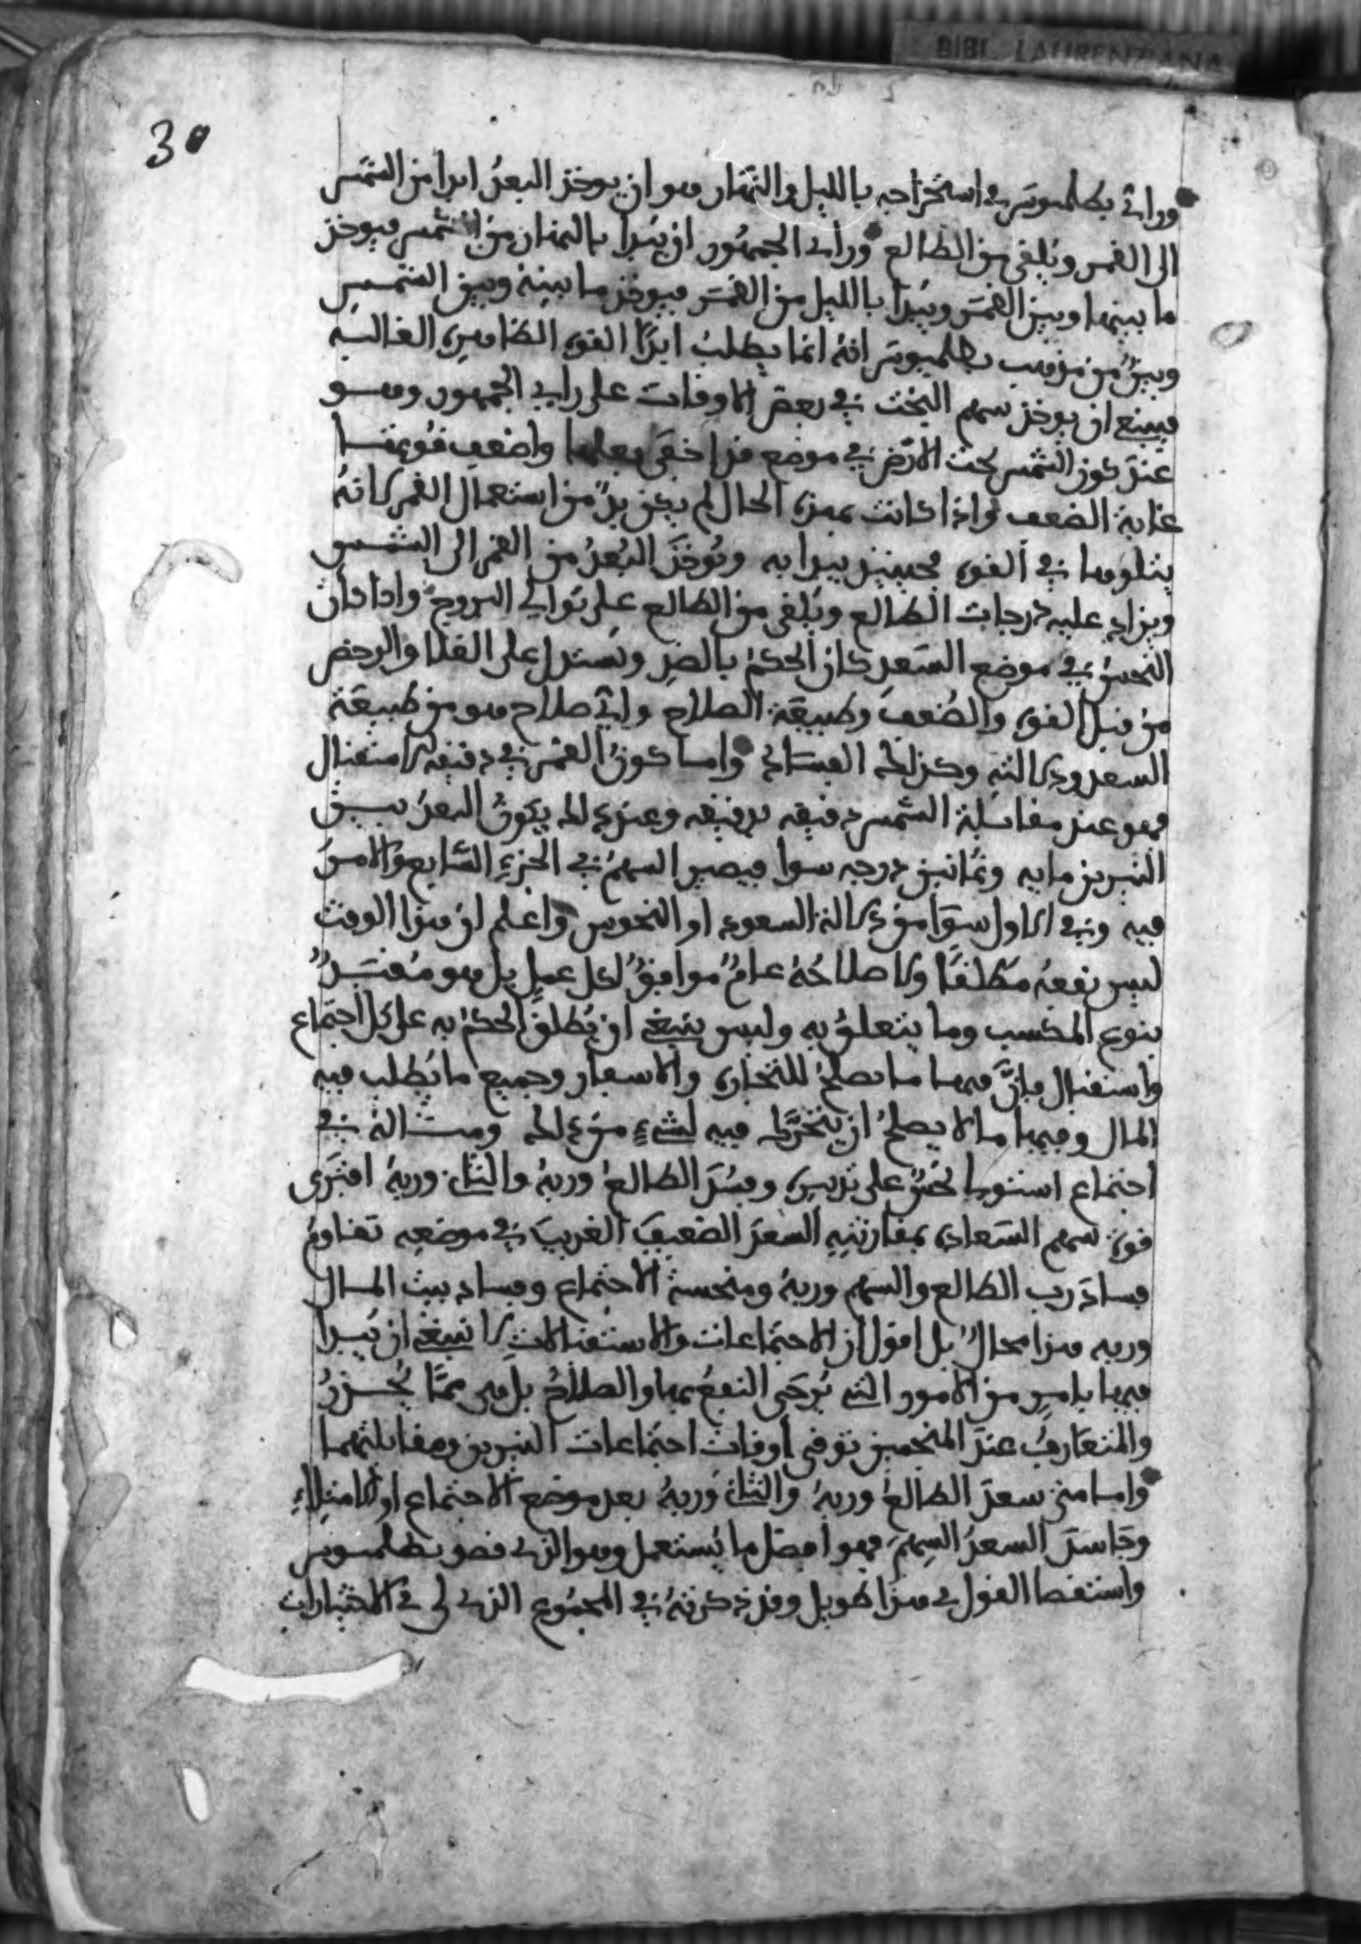 BIBL. LAURENZIANA
30
وراى بطلميوس في استخراجه بالليل والنهار وهو ان يوخذ البعدُ ابدا من الشمس
الى القمر ويُلقى من الطالع وراى الجمهور ان يُبدا بالنهار من الشمس فيوخذ
ما بينها وبين القمر ويُبدا بالليل من القمر فيوخذ ما بينه وبين الشمس
وبيّنٌ من مذهب بطلميوس انه انما يطلبُ ابدًا القوى الظاهرة الغالبة
فيمنع ان يوخذ سهم البخت في بعض الاوقات على راي الجمهور وهو
عند كون الشمس تحت الارض في موضع قد اخفى فعلها واضعف قوتها
غاية الضعف واذا كانت بهذه الحال لم يكن بدٌ من استعمال القمر لانه
يتلوها في القوة فحينئذ يبدا به ويُوخذ البُعدُ من القمر الى الشمس
ويزاد عليه درجات الطالع ويُلقى من الطالع على توالي البروج واذا كان
النحسُ في موضع السعد كان الحكمُ بالضد ويُستدل على الغلا والرخص
من قبل القوة والضُعف وطبيعة الصلاح واي صلاح هو من طبيعة
السعد ودلالته وكذلك الفساد واما كونُ القمر في دقيقة الاستقبال
فهو عند مقابلة الشمس دقيقه بدقيقه وعند ذلك يكونُ البعدُ بين
النيرين مايه وثمانين درجه سوا فيصير السهمُ في الجزء السابع والامرُ
فيه وفي الاول سوآ من دلالة السعود او النحوس واعلم ان هذا الوقت
ليس نفعه مطلقًا ولا صلاحُهُ عامٌ موافقٌ لكل عمل بل هو مُقيّدٌ
بنوع المكسب وما يتعلق به وليس ينبغي ان يُطلق الحكم به على كل اجتماع
واستقبال فانّ فيها ما يصلحُ للتجارة والاسعار وجميع ما يُطلب فيه
المال وفيها ما لا يصلحُ ان يتحرّك فيه لشيء من ذلك ومثاله في
اجتماع استوليا نحسٌ على تدبيره وفسَد الطالعُ وربهُ والثاني وربهُ افترى
قوة سهم السعادة بمقارنته السعد الضعيف الغريب في موضعه تقاوم
فساد رب الطالع والسهم وربه ومنحسة الاجتماع وفساد بيت المال
وربه هذا محالٌ بل اقول ان الاجتماعات والاستقبالات لا ينبغي ان يُبدا
فيها بامرٍ من الامور التي يُرجى النفعُ بها والصلاحُ بل هى ممّا يُحذرُ
والمتعارفُ عند المنجمين توقي اوقات اجتماعات النيرين ومقابلتهما
واما متى سعد الطالعُ وربهُ والثاني وربهُ بعد موضع الاجتماع او الامتلاء
وجاسد السعدُ السهم فهو افضل ما يُستعمل وهو الذي قصد بطلميوس
واستقصا القول في هذا طويل وقد ذكرتهُ في المجموع الذي لي في الاختيارات